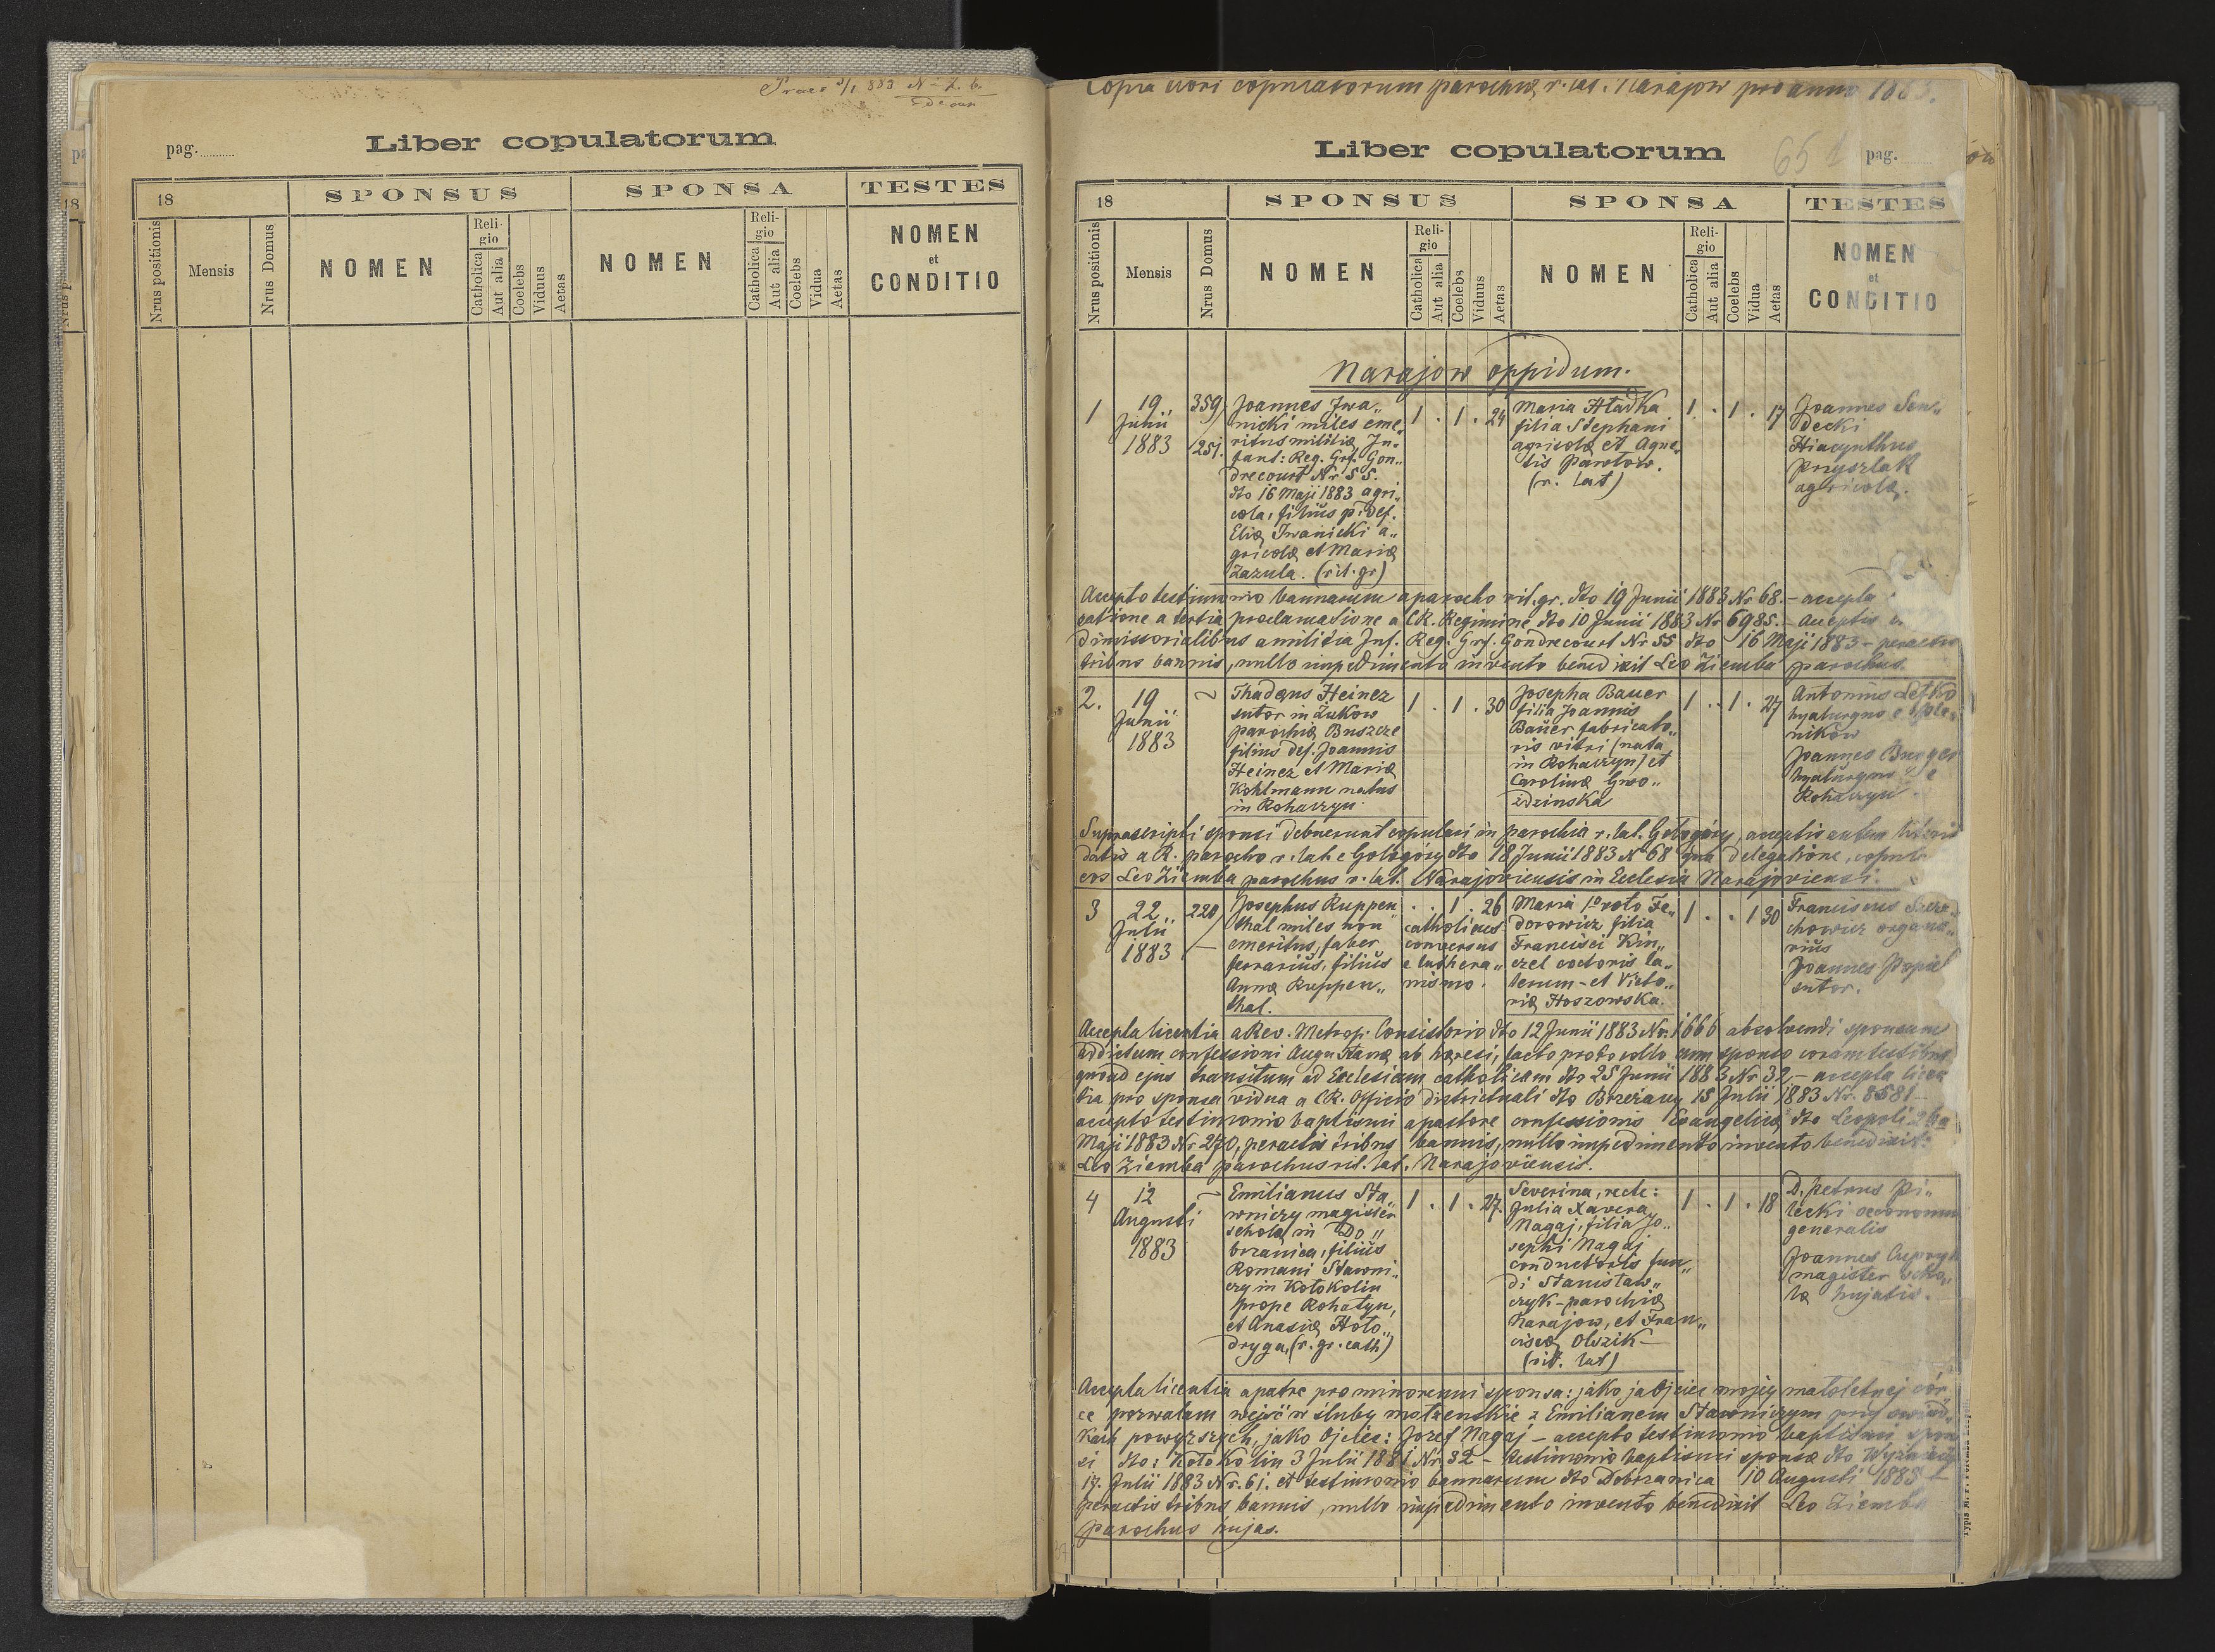 pag.
Liber copulatorum
18
SPONSUS
SPONSA
TESTES
Nrus positionis
Mensis
Nrus Domus
NOMEN
Reli-
gio
Catholica
Aut alia
Coelebs
Viduus
Aetas
NOMEN
Reli-
gio
Catholica
Aut alia
Coelebs
Vidua
Aetas
NOMEN
et
CONDITIO
Copia libri copulatorum parochiæ r. lat. Narajow pro anno 1883.
Liber copulatorum
pag.
18
SPONSUS
SPONSA
TESTES
Nrus positionis
Mensis
Nrus Domus
NOMEN
Reli-
gio
Catholica
Aut alia
Coelebs
Viduus
Aetas
NOMEN
Reli-
gio
Catholica
Aut alia
Coelebs
Vidua
Aetas
NOMEN
et
CONDITIO
Narajow oppidum.
1
19
Junii
1883
359
251.
Joannes Jwa„
nicki miles eme„
ritus militiæ In„
fant: Reg. Grf. Gon„
drecourt Nr 55.
dto 16 Maji 1883 agri„
cola, filius p. def.
Eliæ Iwanicki a„
gricolæ et Mariæ
Zazula. (rit. gr)
1 . 1 . 24
Maria Hładka
filia Stephani
agricolæ et Agne„
tis Pawłow.
(r. lat)
1 . 1 . 17
Joannes Sen„
decki
Hiacynthus
Przyszlak
agricolæ.
Accepto testimonio bannorum a parocho rit. gr. dto 19 Junii 1883 Nr 68. - accepta
satione a tertia proclamatione a CR. Regimine dto 10 Junii 1883 Nr 6985. - acceptis
dimissorialibus a militia Inf. Reg. Grf. Gondrecourt Nr 55 dto 16 Maji 1883 - peractis
tribus bannis, nullo impedimento invento benedixit Leo Ziemba parochus.
2.
19
Junii
1883
Thadæus Heinez
sutor in Żukow
parochiæ Buszcze
filius def. Joannis
Heinez et Mariæ
Kohlmann natus
in Rohaczyn
1 . 1 . 30
Josepha Bauer
filia Joannis
Bauer fabricato„
ris vitri (nata
in Rohaczyn) et
Carolinæ Gwo„
ździnska
1 . . 1 . 27
Antonius Letko
hyalurgus e
nikow
Joannes Burger
hyalurgus e
Rohaczyn
Suprascripti sponsi debuerunt copulari in parochia r. lat. Gołogóry, acceptis autem literis
datis a R. parocho r. lat. e Gołogóry dto 18 Junii 1883 N 68 qua delegatione, copul
eos Leo Ziemba parochus r. lat. Narajoviensis in Ecclesia Narajoviensi.
3
22
Julii
1883
220
Josephus Ruppen„
thal miles non
emeritus, faber
ferrarius, filius
Annæ Ruppen„
thal.
. . 1 . 26
catholicus
conversus
e luthera„
nismo.
Maria 1º voto Fe„
dorowicz filia
Francisci Kin„
czel coctoris la„
terum - et Victo„
riæ Hoszowska.
1 . . 1 30
Franciscus
chowicz organa„
rius
Joannes Popiel
sutor.
Accepta licentia a Rev. Metrop. Consistorio dto 12 Junii 1883 Nr. 1666 absolvendi sponsum
addictum confessioni Augustanæ ab hæresi, facto protocollo cum sponso coram testibus
quoad ejus transitum ad Ecclesiam catholicam dto 25 Junii 1883 Nr 32, - accepta licen
tia pro sponsa vidua a CR. Officio districtuali dto Brzeżany 15 Julii 1883 Nr. 8581 -
accepto testimonio baptismi a pastore confessionis Evangelicæ dto Leopoli
Maji 1883 Nr 270, peractis tribus bannis, nullo impedimento invento benedixit
Leo Ziemba parochus rit. lat. Narajoviensis.
4
12
Augusti
1883
Emilianus Sta„
wniczy magister
scholæ in Do„
brzanica, filius
Romani Stawni„
czy in Kołokolin
prope Rohatyn,
et Anasiæ Hoło„
dryga, (r. gr. cath)
1 . 1 . 27.
Severina, recte:
Julia Xavera
Nagaj, filia Jo„
sephi Nagaj
conductoris fun„
di Stanisław„
czyk - parochiæ
Narajow, et Fran„
ciscæ Olszik -
(rit. lat)
1 . 1 . 18
D. Petrus Pi„
lecki oeconomus
generalis
Joannes
magister scho„
læ hujatis.
Accepta licentia a patre pro minorenni sponsa: jako ja Ojciec mojéj małoletnej cór„
ce pozwalam wejść w śluby małżenskie z Emilianem Stawniczym przy świad„
kach powyższych, jako Ojciec: Józef Nagaj - accepto testimonio baptismi spon
si dto: Kołokolin 3 Julii 1881 Nr 32 - testimonio baptismi sponsæ dto
17. Julii 1883 Nr. 61. et testimonio bannorum dto Dobrzanica 10 Augusti 1883 -
peractis tribus bannis, nullo impedimento invento benedixit Leo Ziemba
parochus hujas.